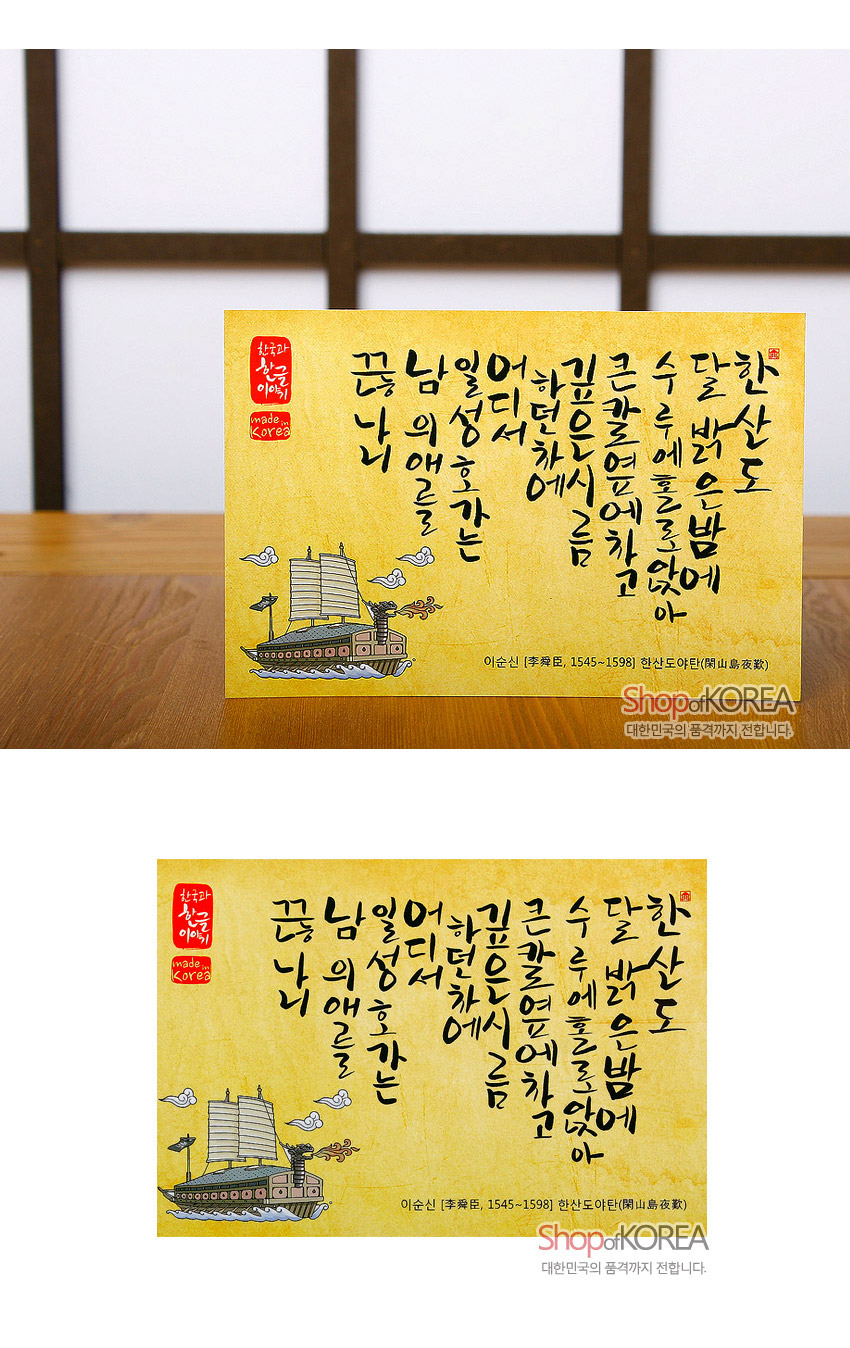 한국과
한글
이야기
made in
Korea
한산도
달 밝은 밤에
수루에 홀로 앉아
큰 칼 옆에 차고
깊은 시름
하던 차에
어디서
일성호가는
남의 애를
끊나니
이순신 [李舜臣, 1545~1598] 한산도야탄(閑山島夜歎)
Shop of KOREA
대한민국의 품격까지 전합니다.
한국과
한글
이야기
made in
Korea
한산도
달 밝은 밤에
수루에 홀로 앉아
큰 칼 옆에 차고
깊은 시름
하던 차에
어디서
일성호가는
남의 애를
끊나니
이순신 [李舜臣, 1545~1598] 한산도야탄(閑山島夜歎)
Shop of KOREA
대한민국의 품격까지 전합니다.